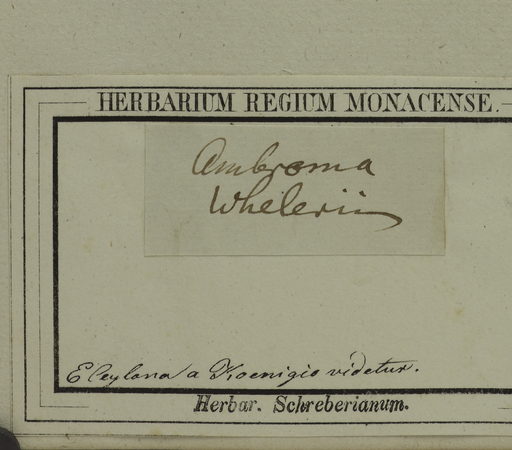 HERBARIUM REGIUM MONACENSE.
Ambroma
Whelerii
E Ceylona a Koenigio videtur.
Herbar. Schreberianum.